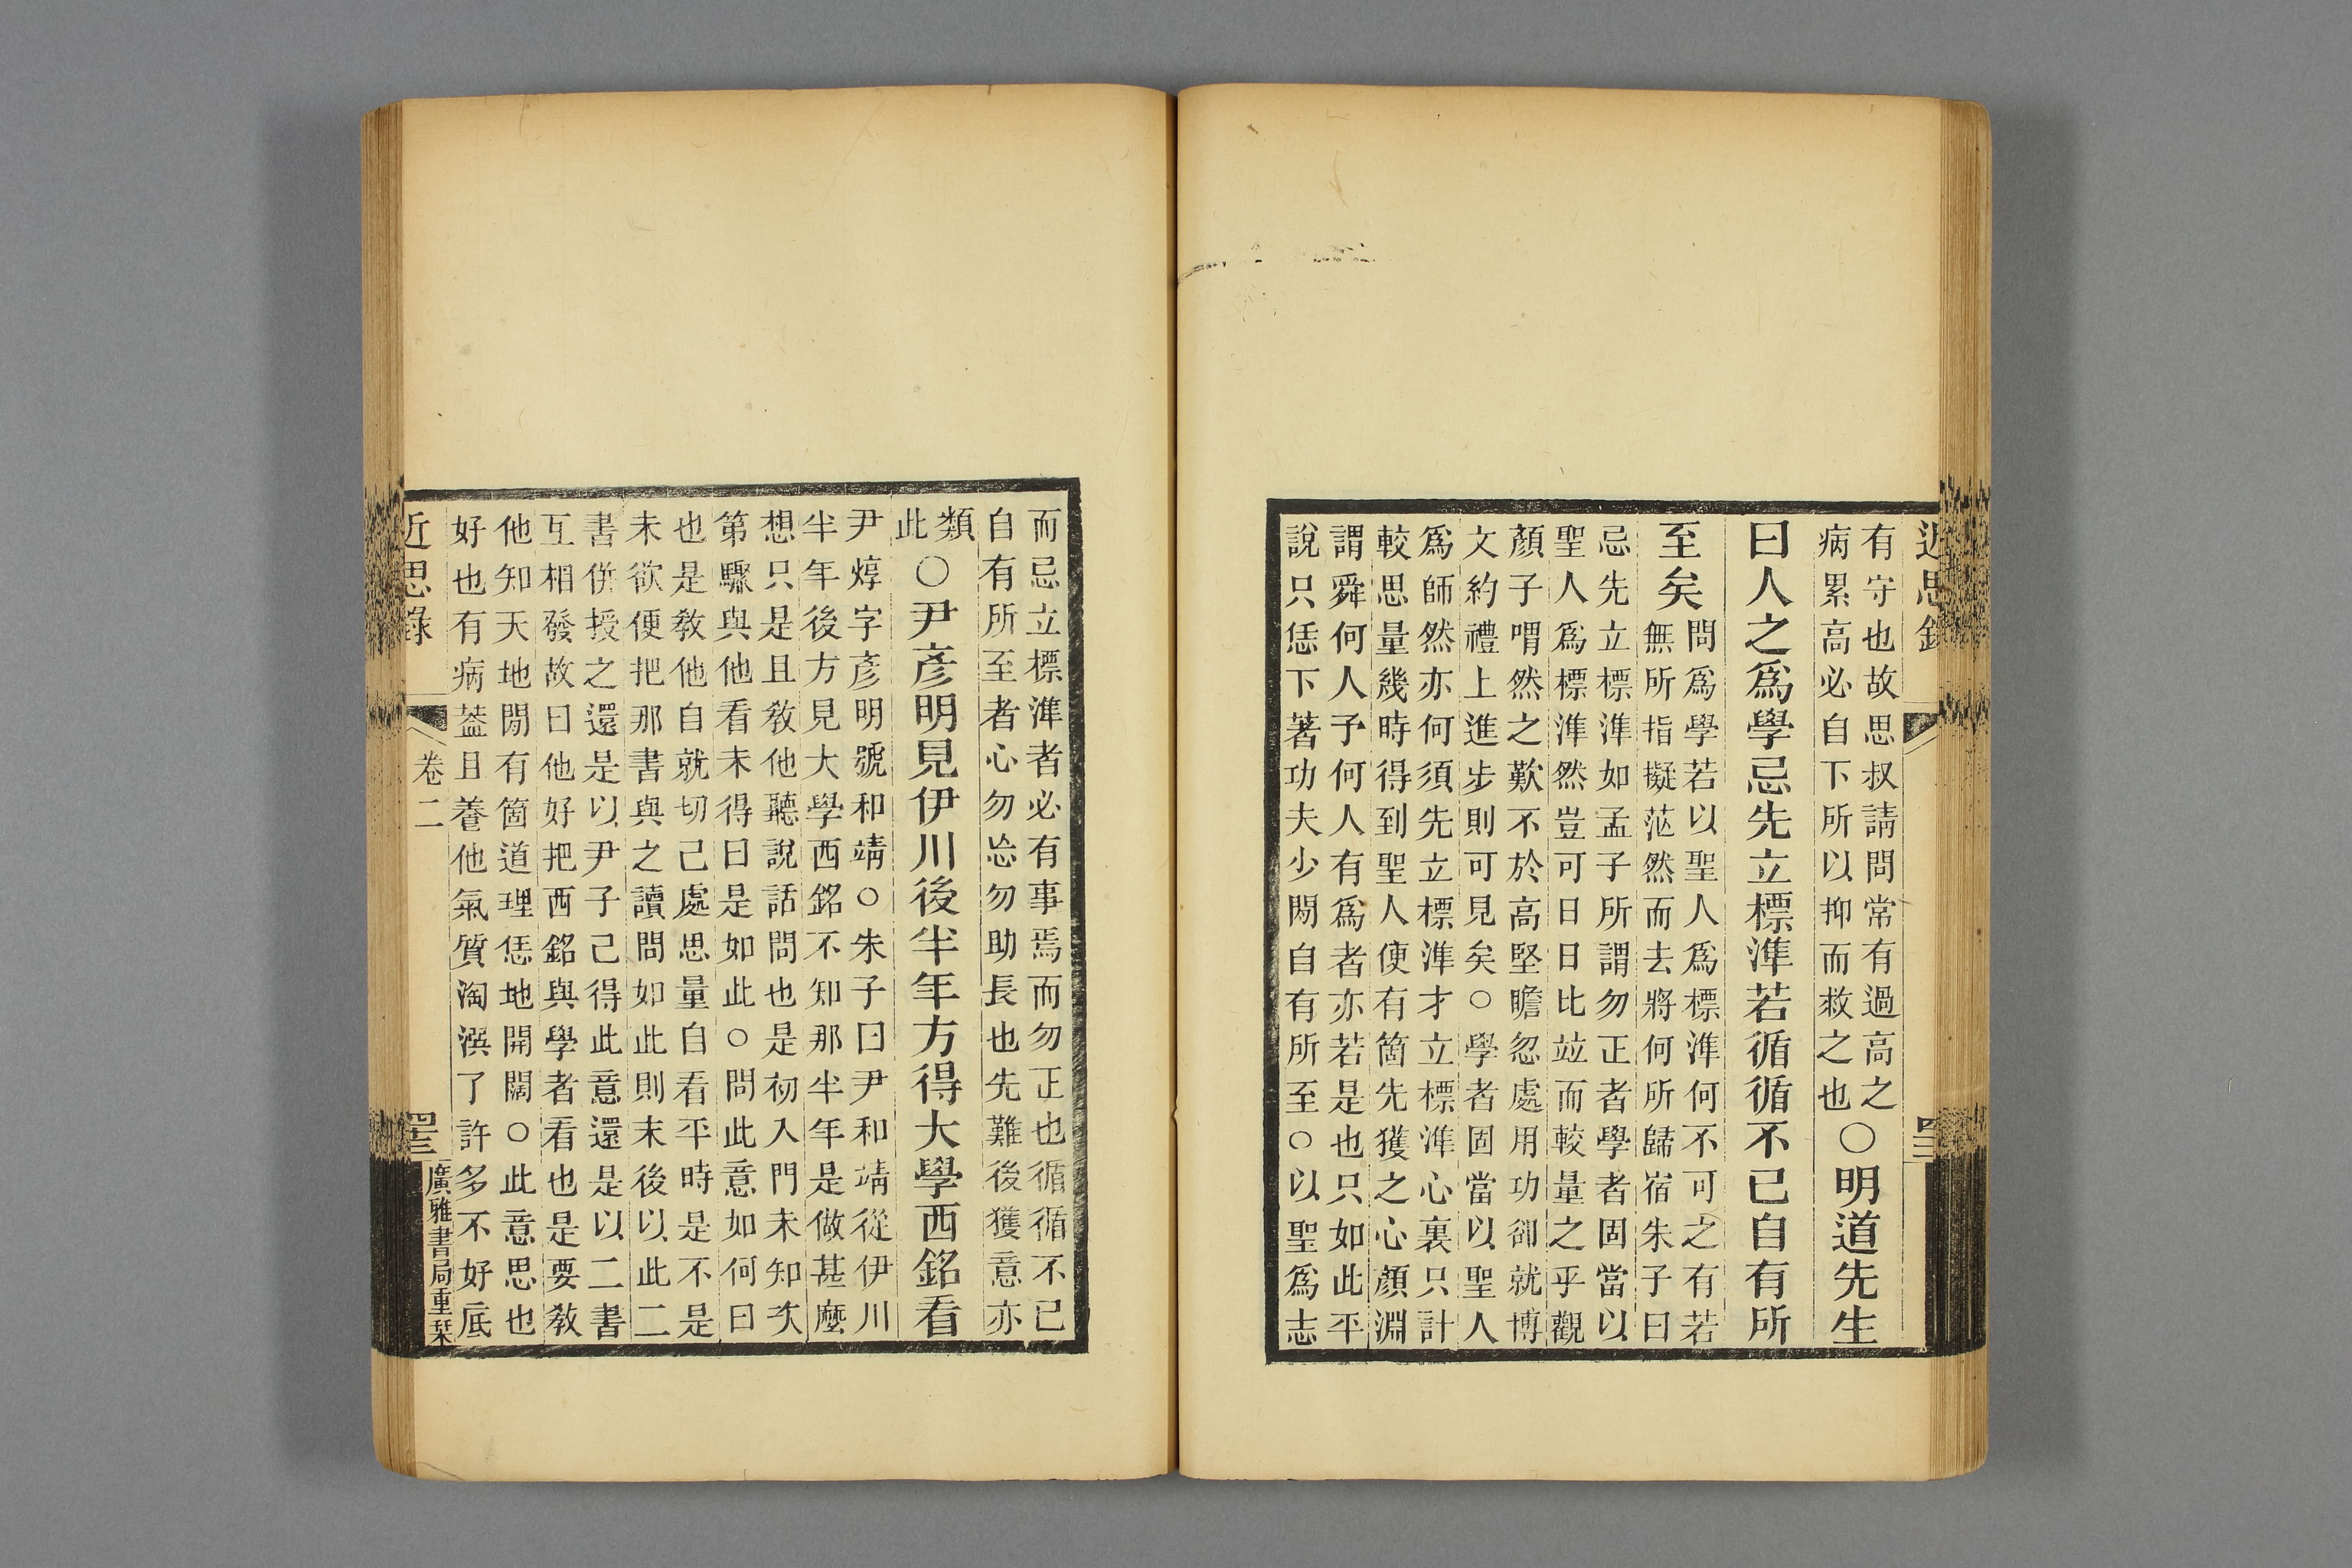 近思錄
四三
有守也故思叔請問常有過高之
病累高必自下所以抑而救之也
○明道先生
曰人之爲學忌先立標準若循循不已自有所
至矣
問爲學若以聖人爲標準何不可之有若
無所指擬茫然而去將何所歸宿朱子曰
忌先立標準如孟子所謂勿正者學者固當以
聖人爲標準然豈可日日比竝而較量之乎觀
顏子喟然之歎不於高堅瞻忽處用功卻就博
文約禮上進步則可見矣○學者固當以聖人
爲師然亦何須先立標準才立標準心裏只計
較思量幾時得到聖人便有箇先獲之心顏淵
謂舜何人予何人有爲者亦若是也只如此平
說只恁下著功夫少閒自有所至○以聖爲志
而忌立標準者必有事焉而勿正也循循不已
自有所至者心勿忘勿助長也先難後獲意亦
類
此
○尹彥明見伊川後半年方得大學西銘看
尹焞字彥明號和靖○朱子曰尹和靖從伊川
半年後方見大學西銘不知那半年是做甚麼
想只是且敎他聽說話問也是初入門未知次
第驟與他看未得曰是如此○問此意如何曰
也是敎他自就切己處思量自看平時是不是
未欲便把那書與之讀問如此則末後以此二
書併授之還是以尹子已得此意還是以二書
互相發故曰他好把西銘與學者看也是要敎
他知天地閒有箇道理恁地開闊○此意思也
好也有病葢且養他氣質淘潠了許多不好底
近思錄
卷二
四三
廣雅書局重栞